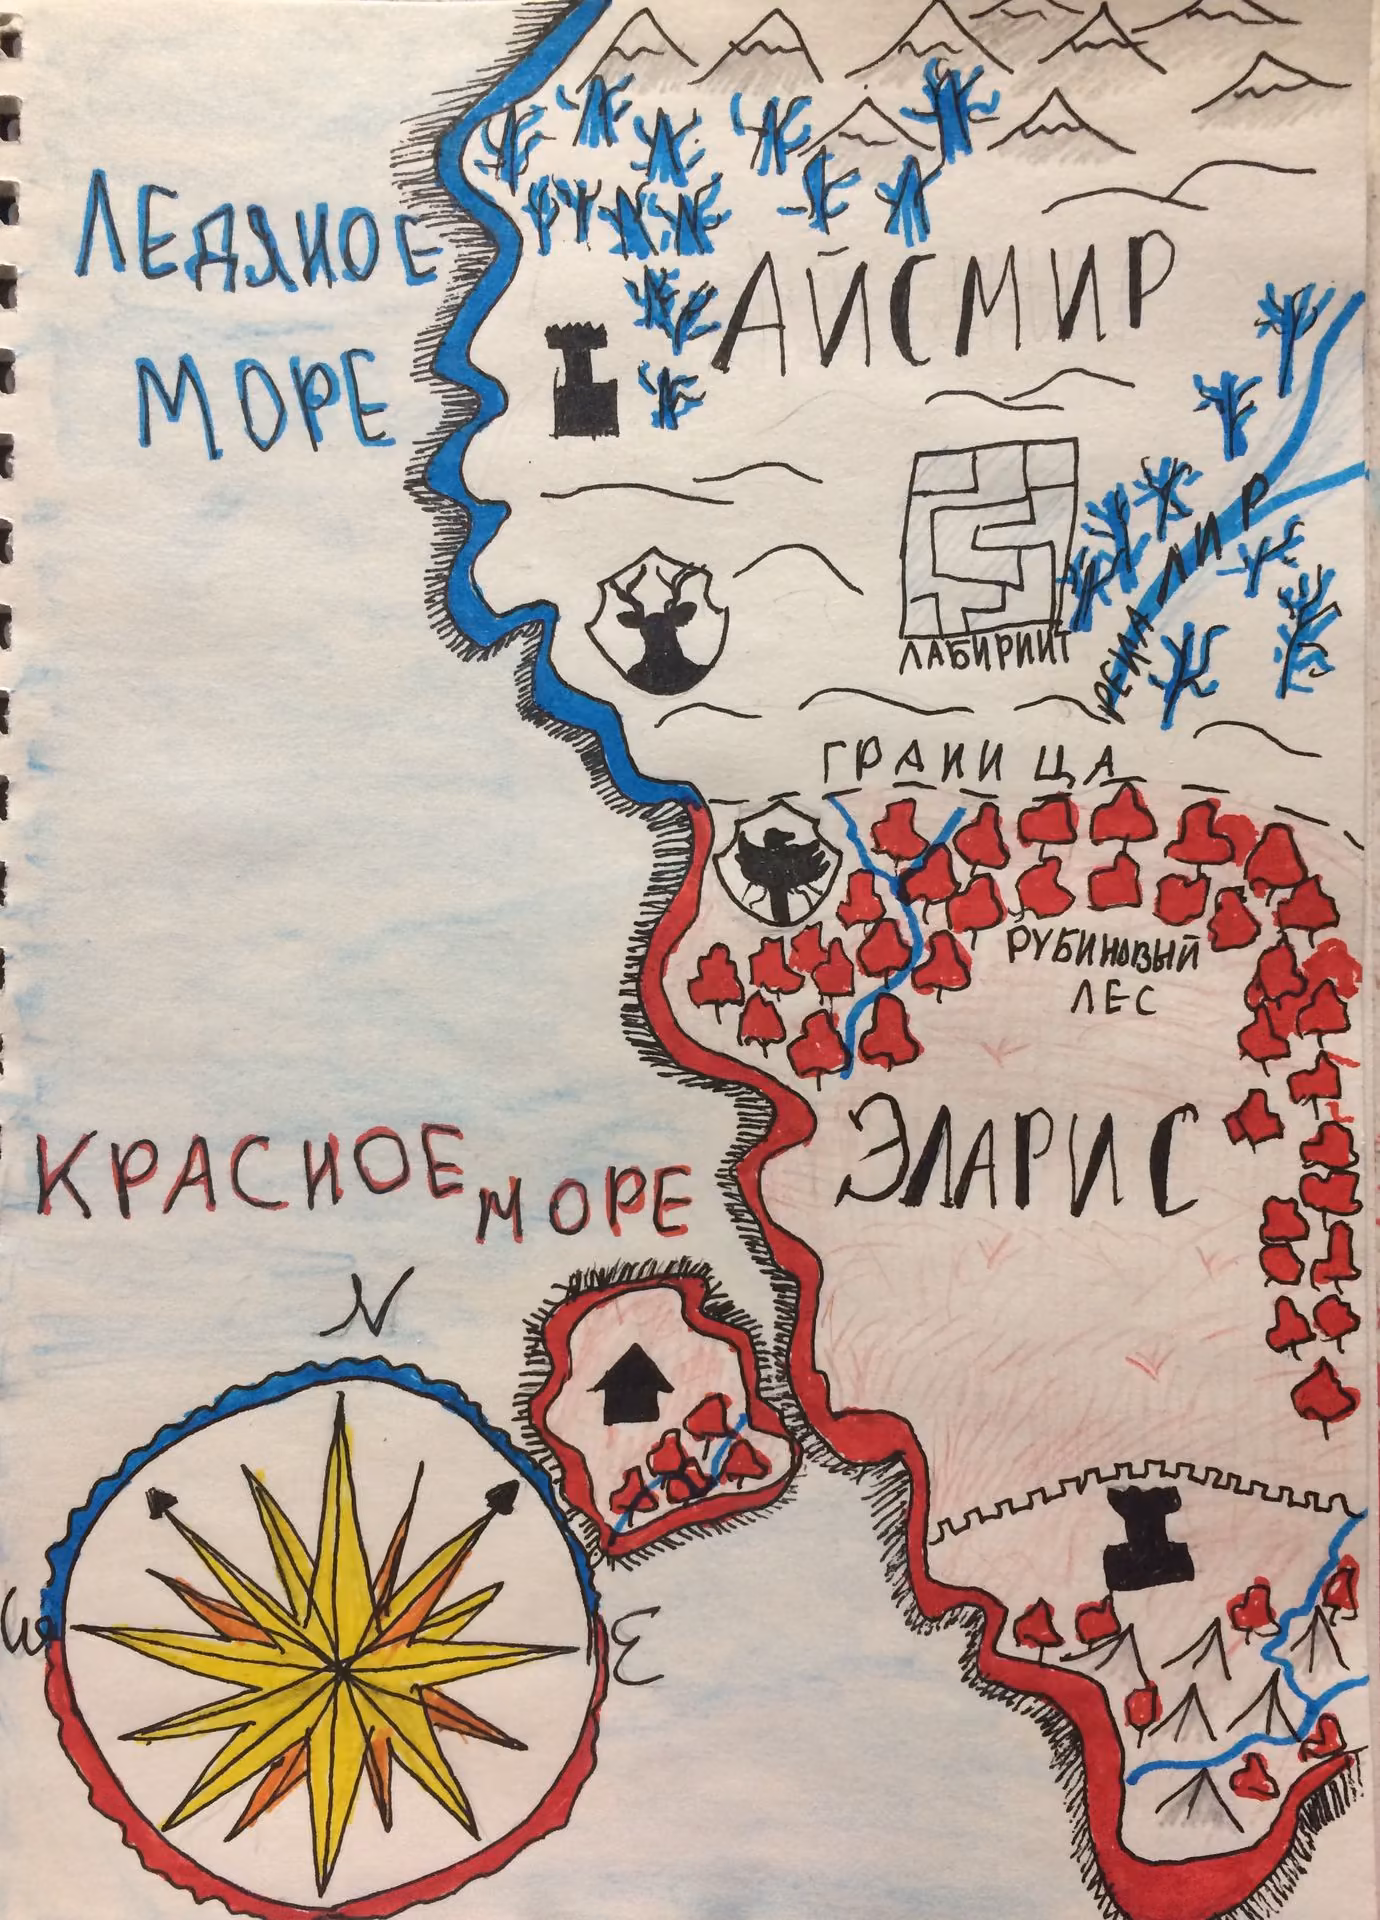 ЛЕДЯНОЕ
МОРЕ
АЙСМИР
РЕКА ЛИР
ЛАБИРИНТ
ГРАНИЦА
РУБИНОВЫЙ
ЛЕС
ЭЛАРИС
КРАСНОЕ МОРЕ
N
W
E